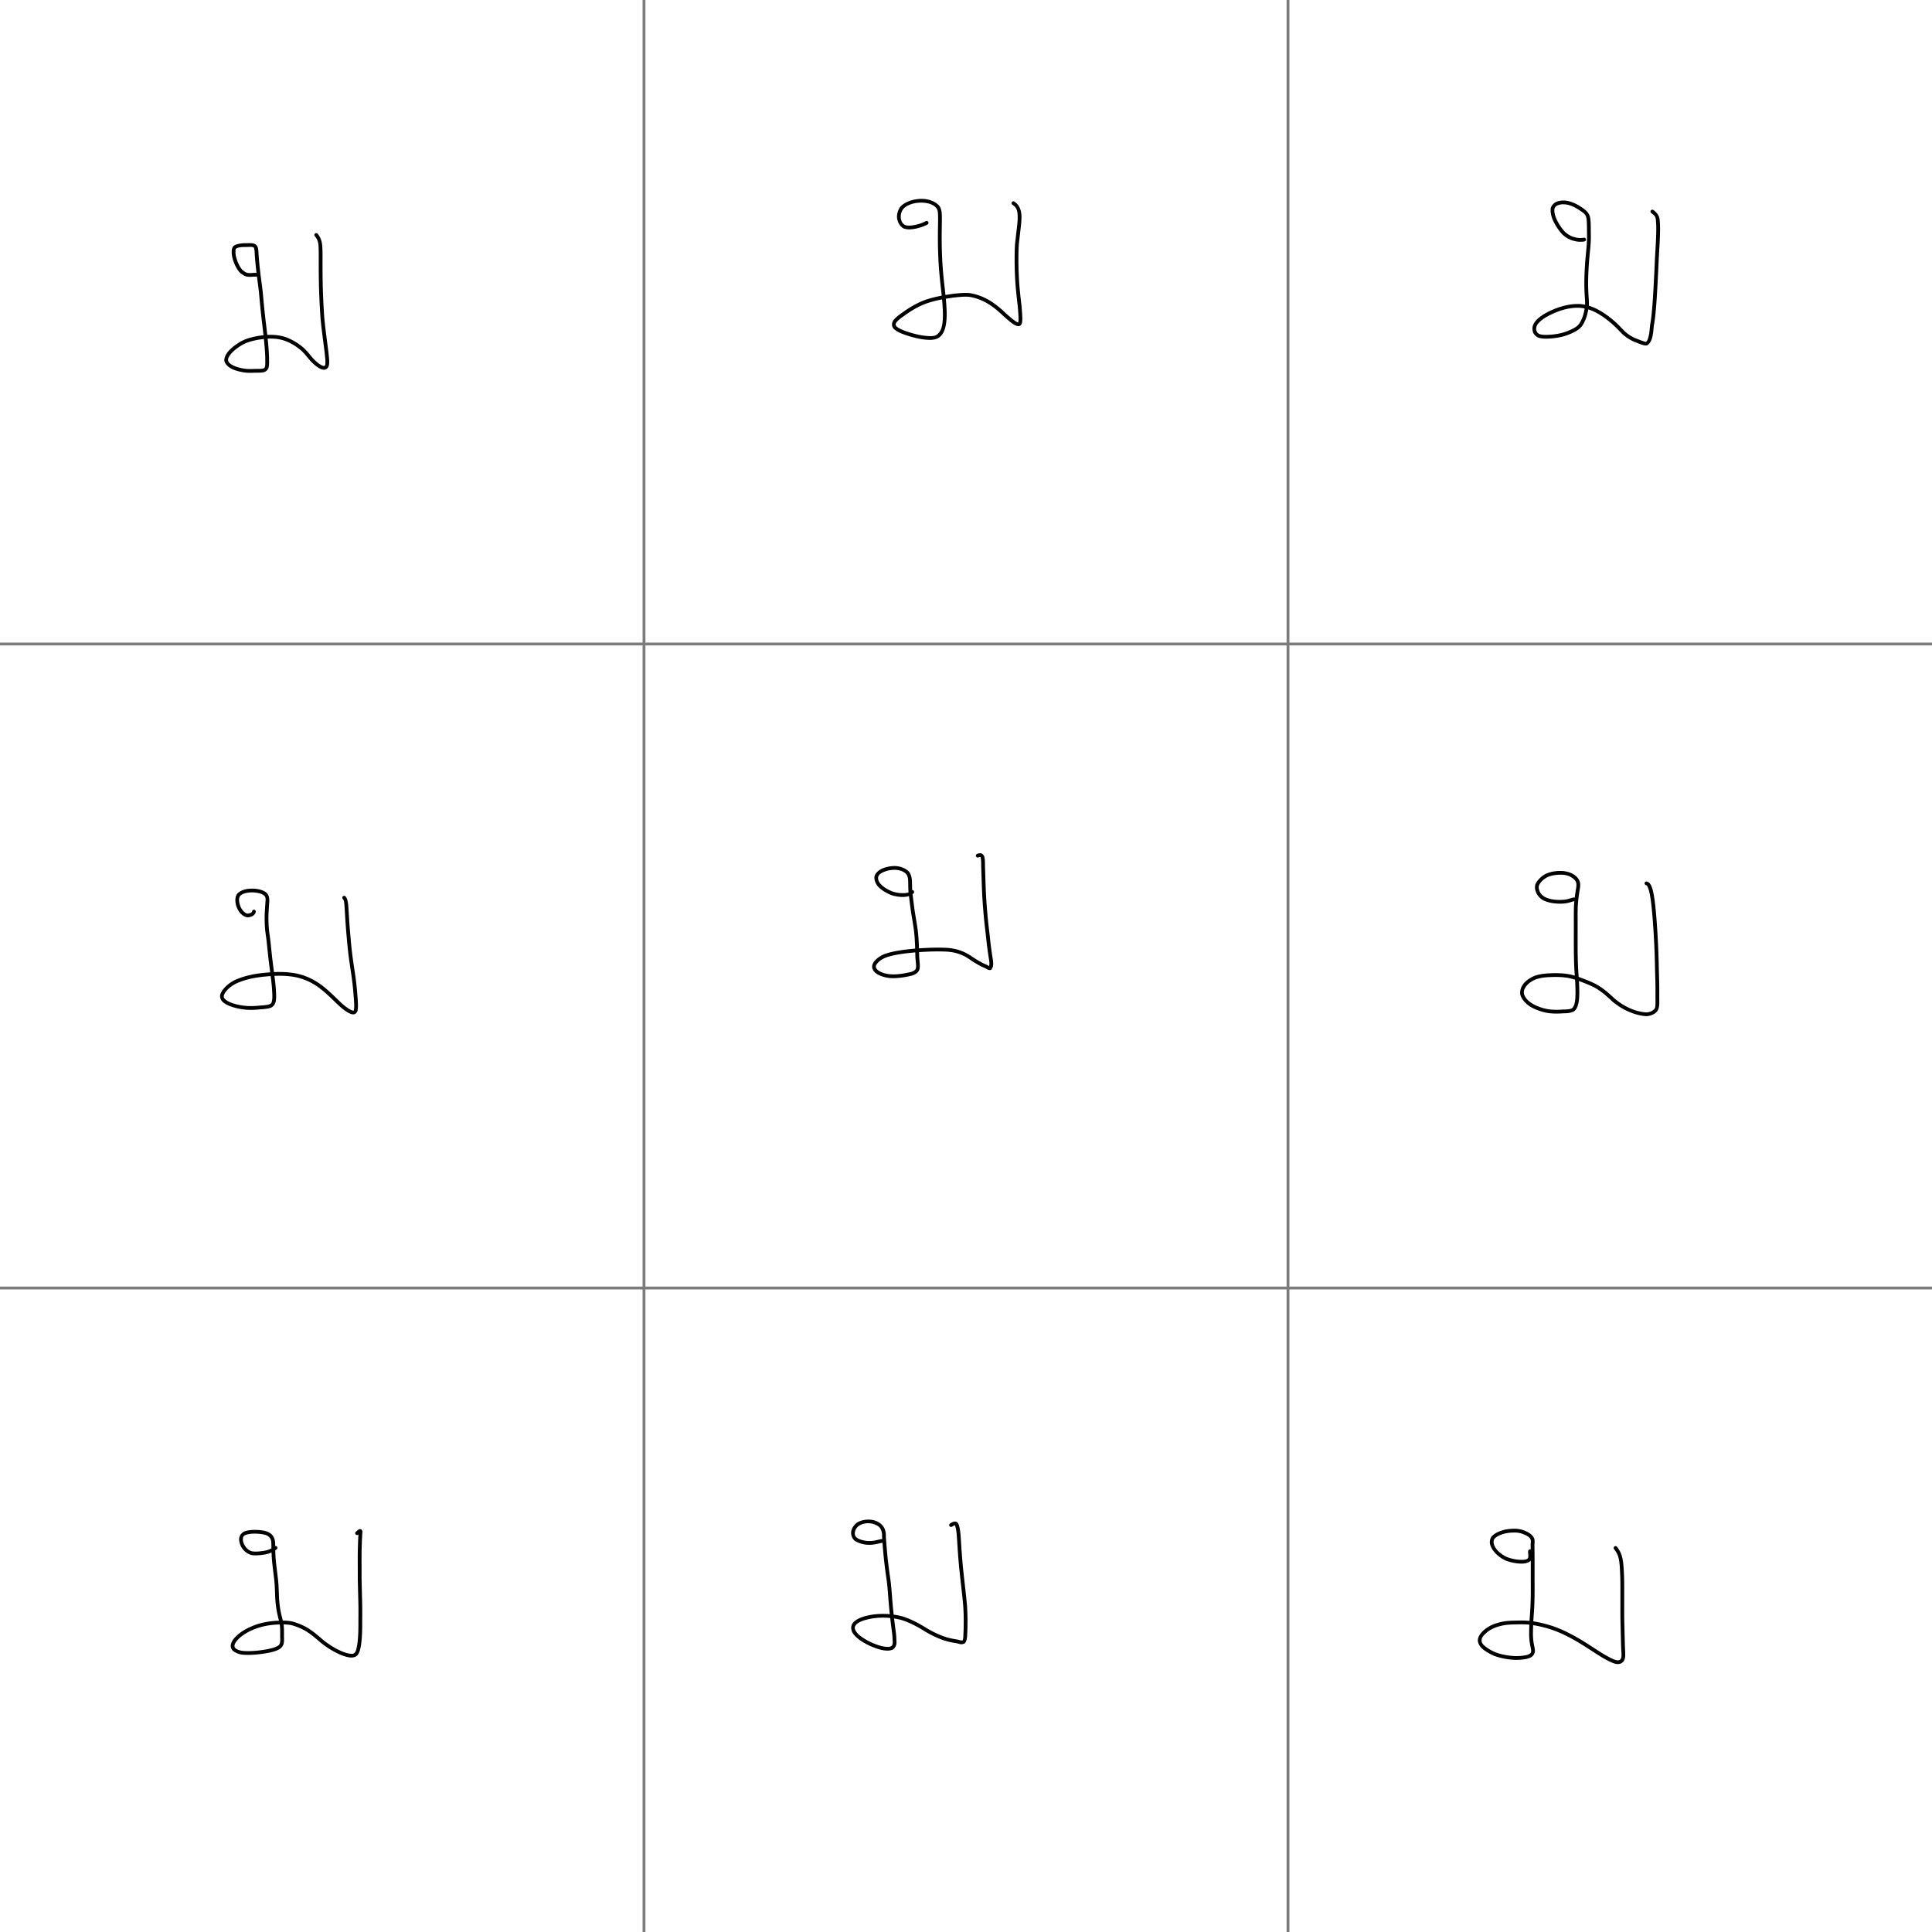 ม ม ม
ม ม ม
ม ม ม